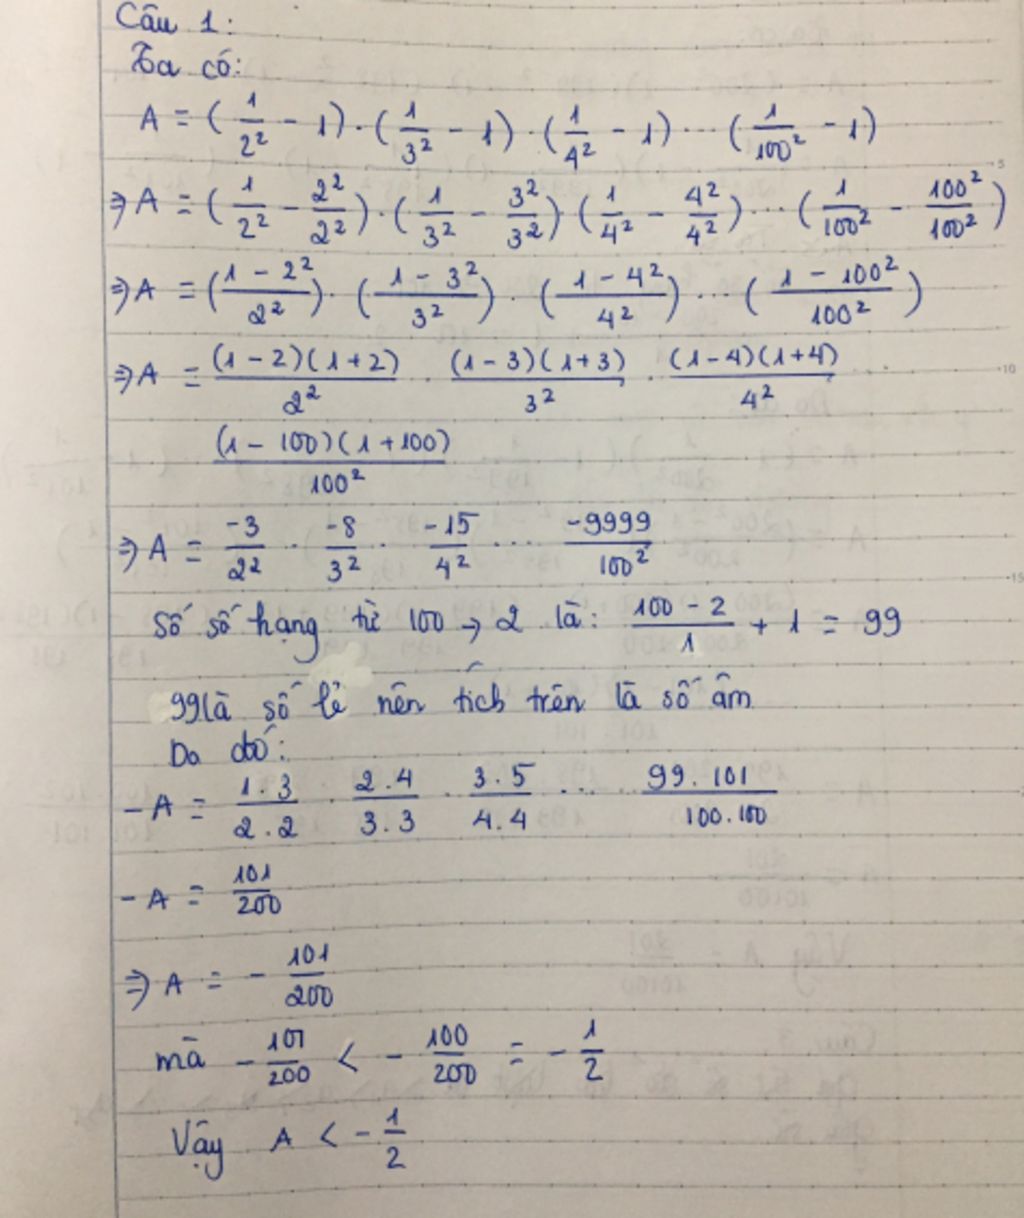 Câu 1:
Ta có:
A = (1/2² - 1) · (1/3² - 1) · (1/4² - 1) ... (1/100² - 1)
⇒ A = (1/2² - 2²/2²) · (1/3² - 3²/3²) · (1/4² - 4²/4²) ... (1/100² - 100²/100²)
⇒ A = (1 - 2²/2²) · (1 - 3²/3²) · (1 - 4²/4²) ... (1 - 100²/100²)
⇒ A = (1 - 2)(1 + 2)/2² · (1 - 3)(1 + 3)/3² · (1 - 4)(1 + 4)/4² ...
(1 - 100)(1 + 100)/100²
⇒ A = -3/2² · -8/3² · -15/4² ... -9999/100²
Số số hạng từ 100 → 2 là: 100 - 2/1 + 1 = 99
99 là số lẻ nên tích trên là số âm
Do đó:
- A = 1.3/2.2 · 2.4/3.3 · 3.5/4.4 ... 99.101/100.100
- A = 101/200
⇒ A = - 101/200
mà - 101/200 < - 100/200 = - 1/2
Vậy A < - 1/2